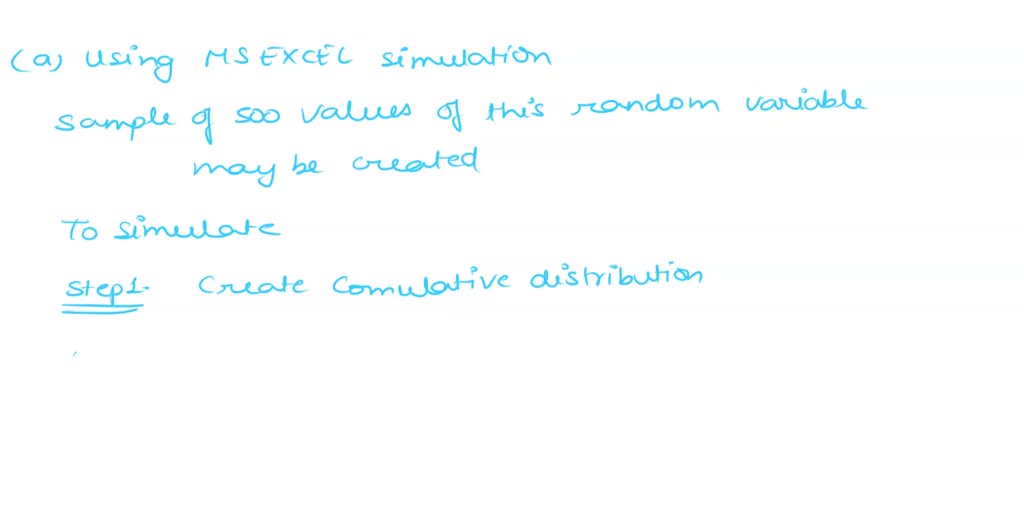 (a) Using MS EXCEL simulation
Sample of 500 values of this random variable
may be created
To simulate
Step1. Create Comulative distribution